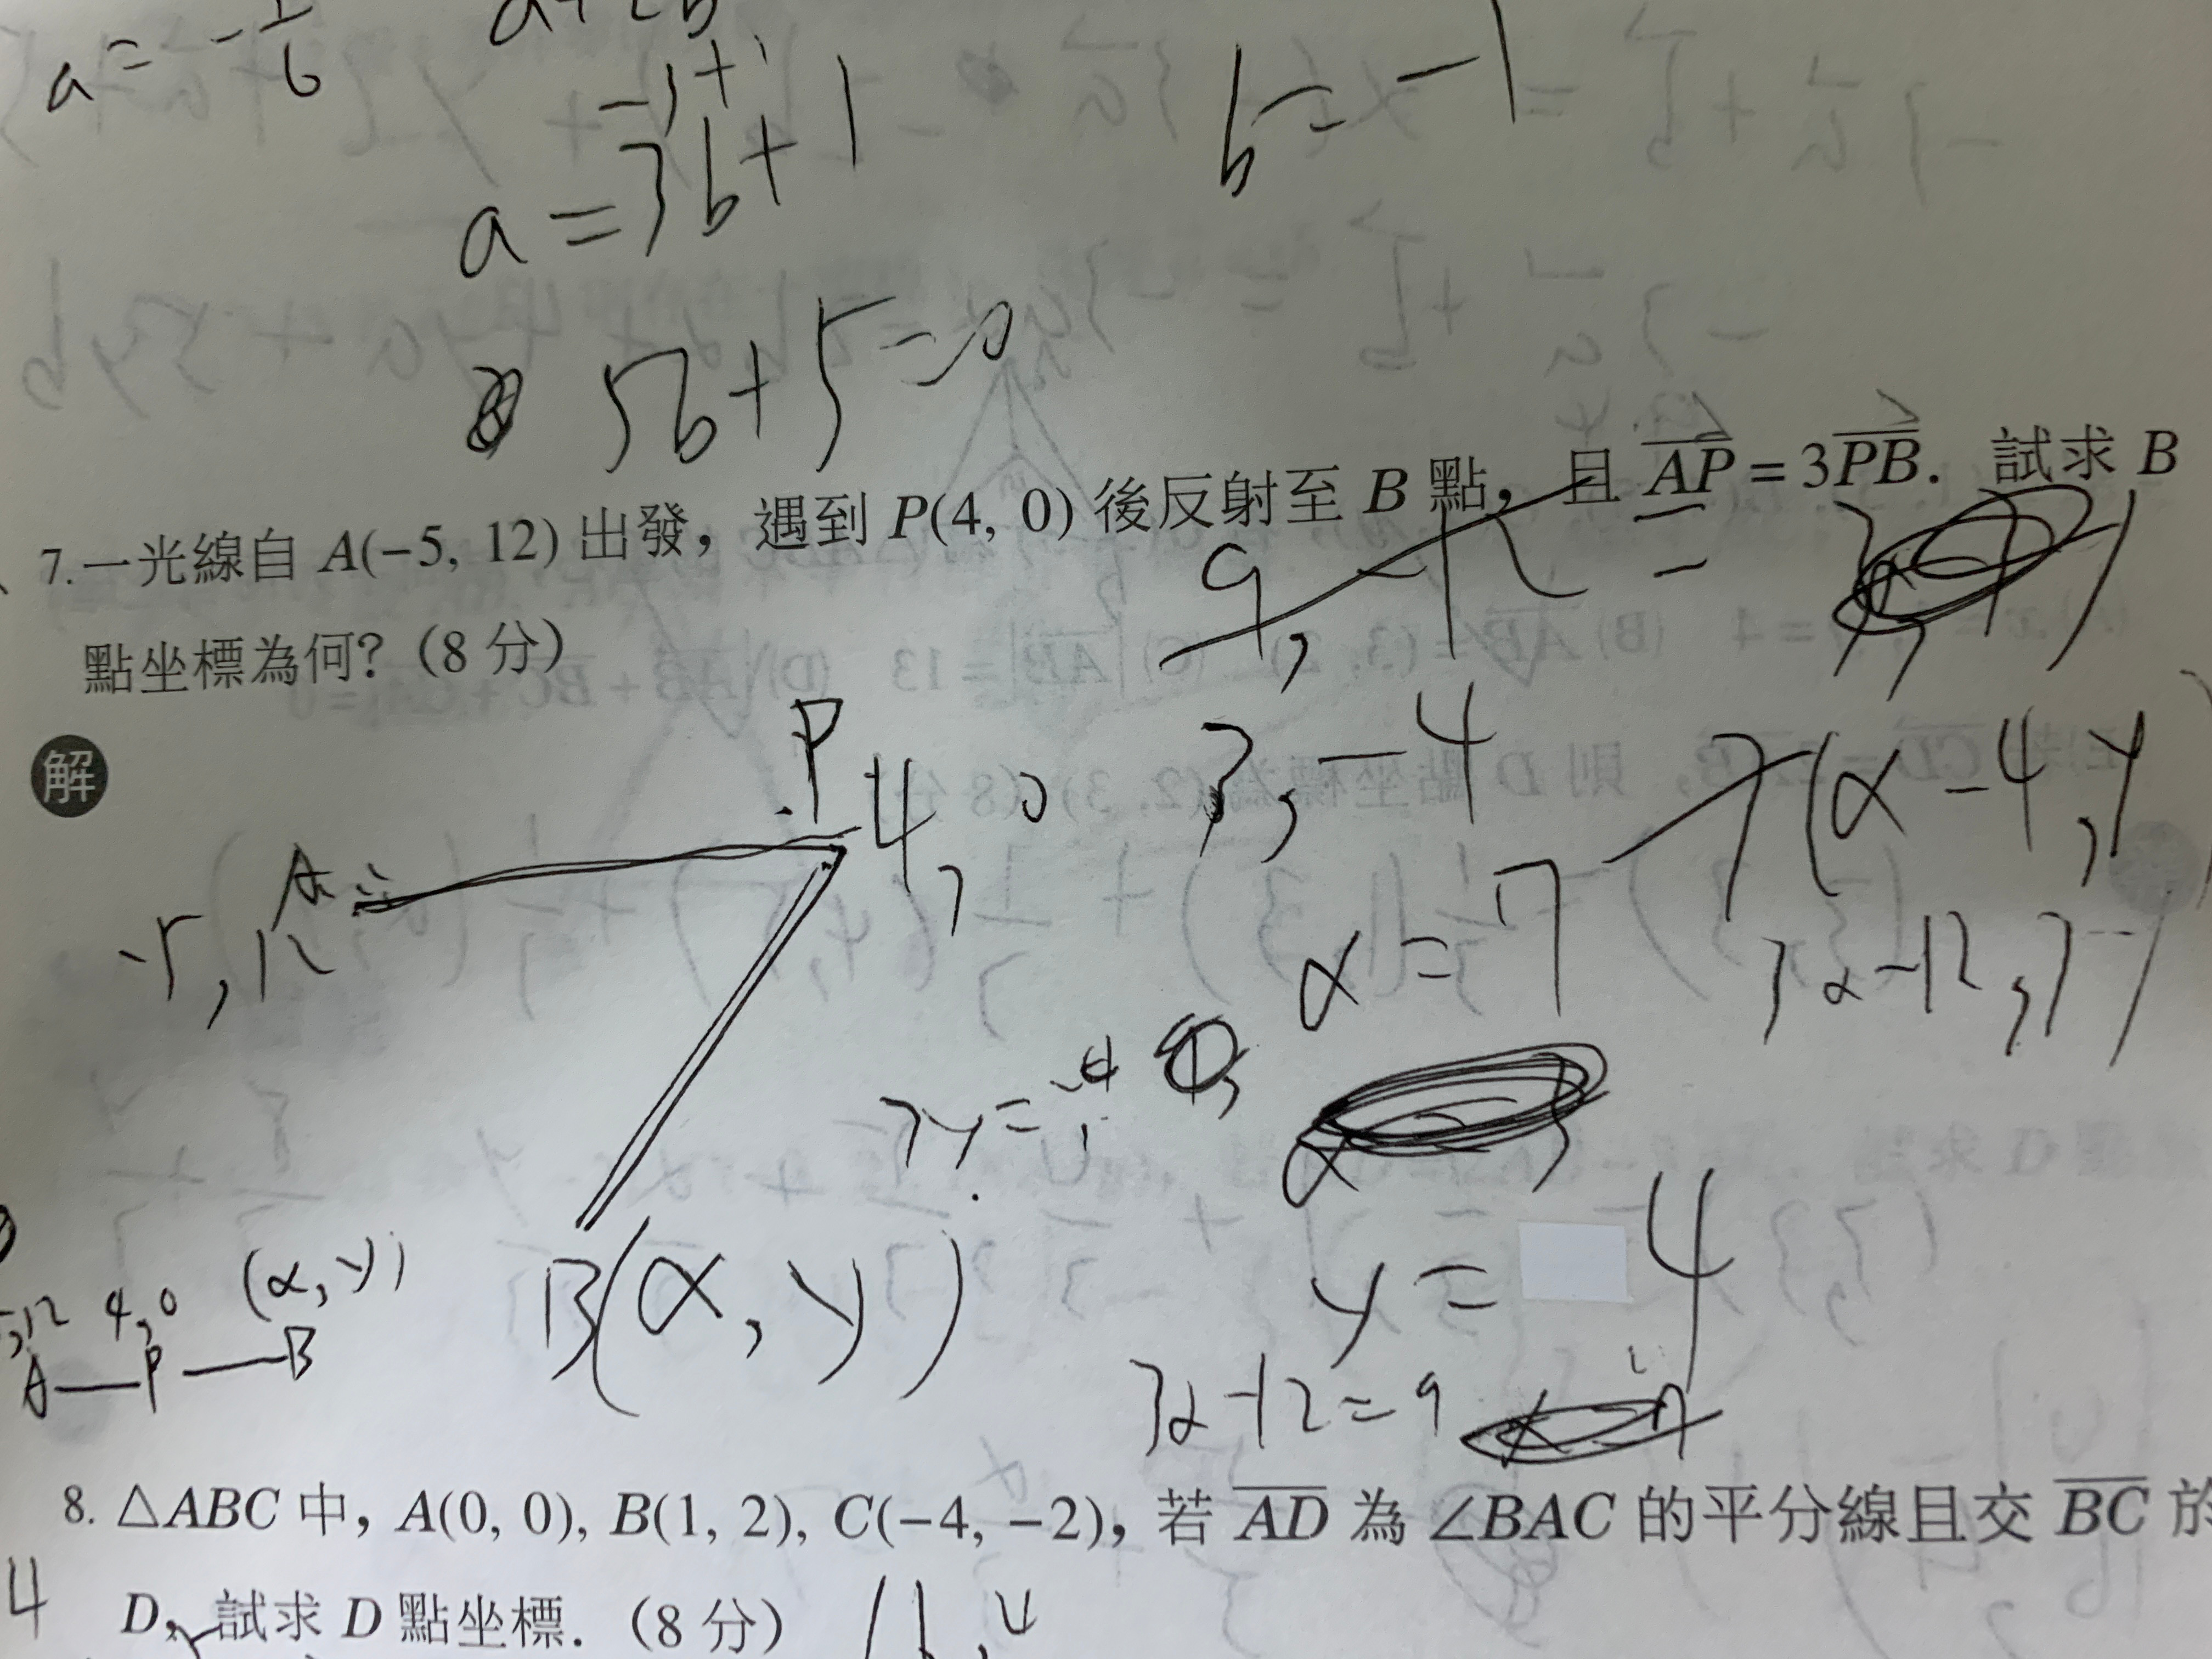 a = -1/6
a+2b
-3+1
a = 3b+1
b = -1
5b+5=0
7.一光線自 A(−5, 12) 出發，遇到 P(4, 0) 後反射至 B 點，且 AP = 3PB. 試求 B
點坐標為何?（8 分）
9, -12 =
解
P
4, 0
A
-5, 12
3, -4
3(α-4, y)
α = 7
3α-12, 3y
3y =
y = 4
B(α, y)
3α-12=9
12 4,0 (α, y)
A—P—B
8. △ABC 中, A(0, 0), B(1, 2), C(−4, −2)，若 AD 為 ∠BAC 的平分線且交 BC 於
4
D，試求 D 點坐標.（8 分）